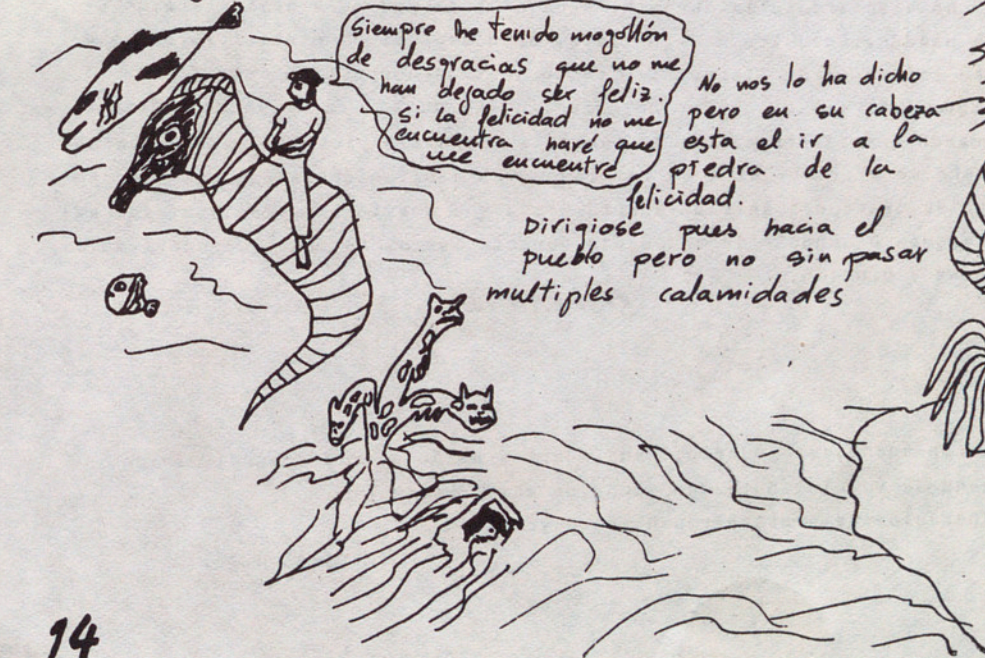 Siempre he tenido mogollón
de desgracias que no me
han dejado ser feliz.
Si la felicidad no me
encuentra haré que
me encuentre
No nos lo ha dicho
pero en su cabeza
esta el ir a la
piedra de la
felicidad.
Dirigiose pues hacia el
pueblo pero no sin pasar
multiples calamidades
14